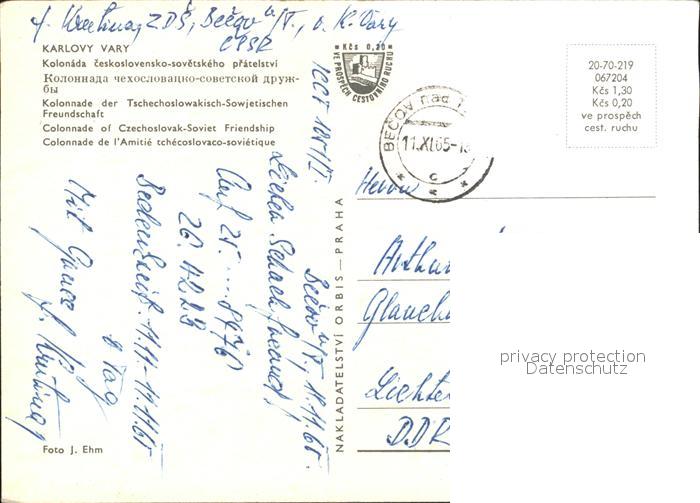 J. Kuelina, ZDŠ, Bečov n/T, o. K. Vary
ČSSR
KARLOVY VARY
Kolonáda československo-sovětského přátelství
Колоннада чехословацко-советской друж-
бы
Kolonnade der Tschechoslowakisch-Sowjetischen
Freundschaft
Colonnade of Czechoslovak-Soviet Friendship
Colonnade de l'Amitié tchécoslovaco-soviétique
Kčs 0,20
VE PROSPĚCH CESTOVNÍHO RUCHU
20-70-219
067204
Kčs 1,30
Kčs 0,20
ve prospěch
cest. ruchu
BEČOV nad
11.XI.65-1
c
Bečov n/T, 11.11.65.
Lieber Schachfreund,
Auf 25.
26.
Bedenkzeit: 11.11-11.11.65
Tag
Mit Gruss
Herrn
Arthu
Glauch
Lichte
DDR
NAKLADATELSTVÍ ORBIS — PRAHA
privacy protection
Datenschutz
Foto J. Ehm